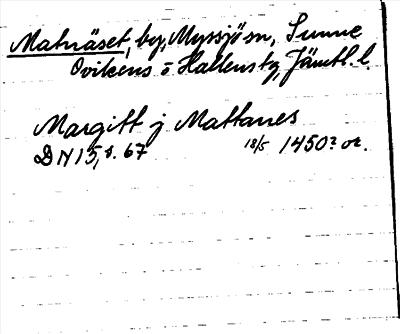 Matnäset, by, Myssjö sn, Sunne
Ovikens o Hallens tg, Jämtl. l.
Margitt j Mattanes
DN 15, s. 67 18/5 1450? or.